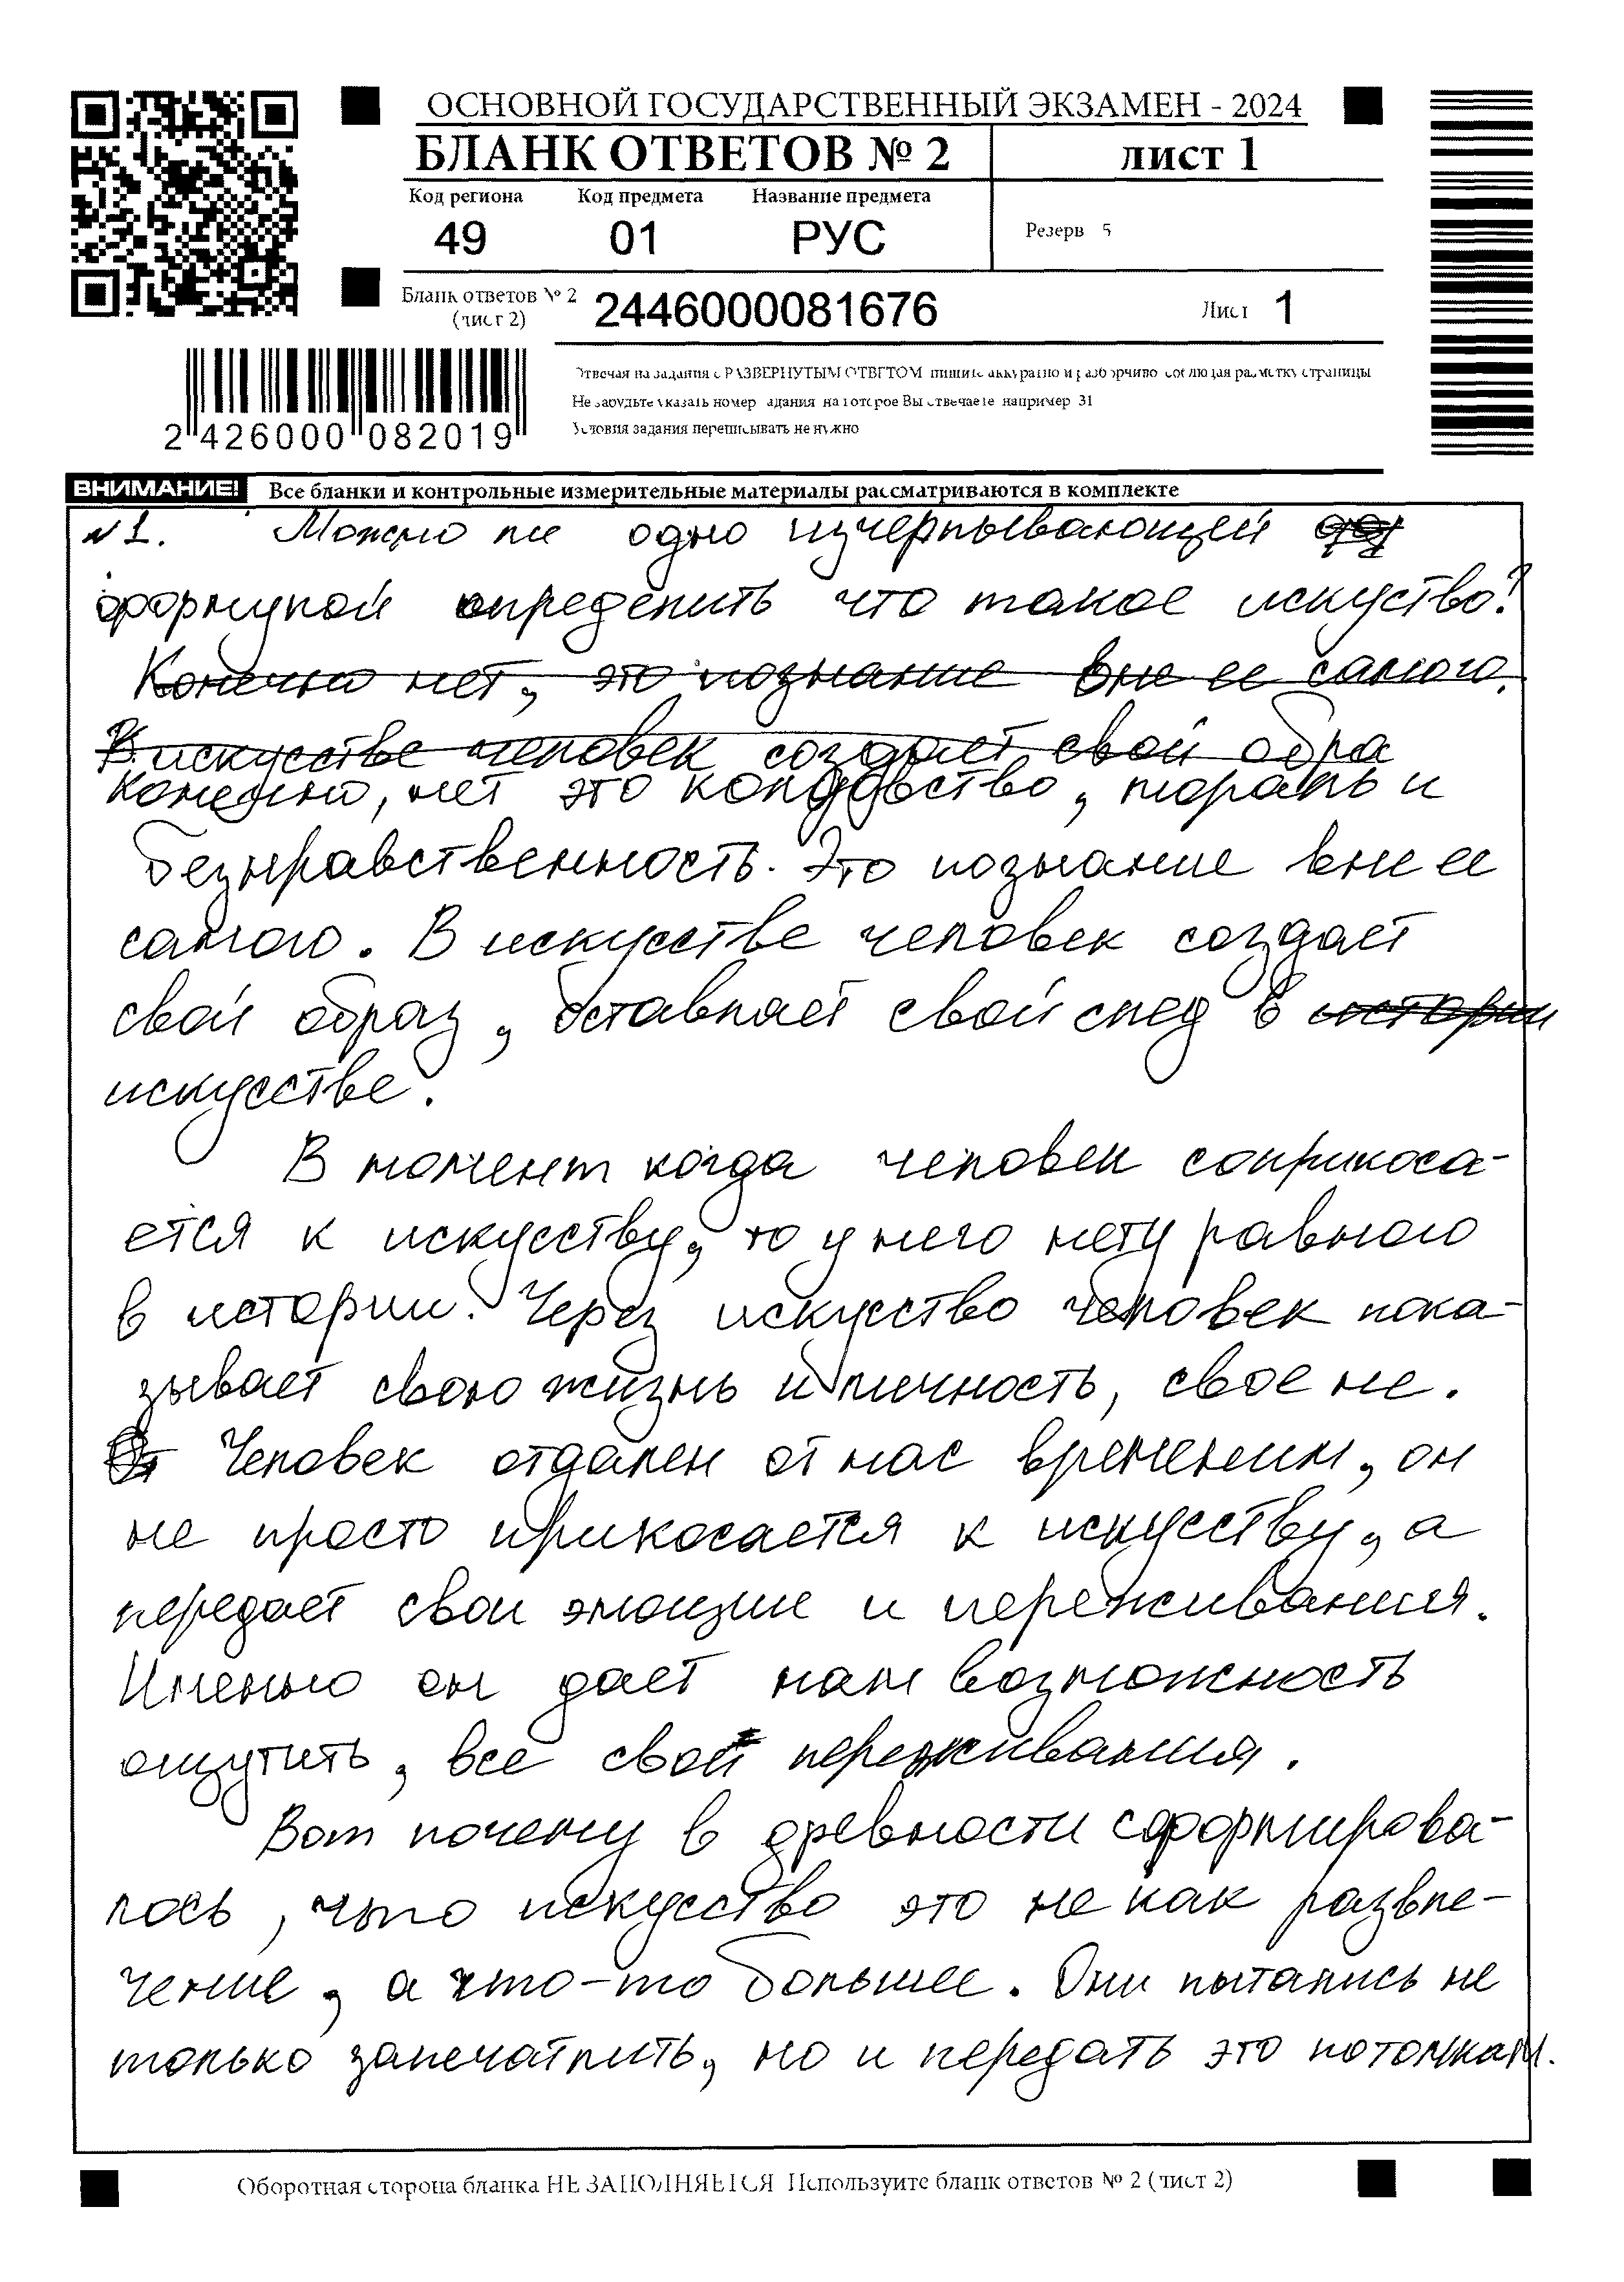 ОСНОВНОЙ ГОСУДАРСТВЕННЫЙ ЭКЗАМЕН - 2024
БЛАНК ОТВЕТОВ № 2
лист 1
Код региона
Код предмета
Название предмета
49
01
РУС
Резерв 5
Бланк ответов № 2
(лист 2)
2446000081676
Лист 1
Отвечая на задания с РАЗВЕРНУТЫМ ОТВЕТОМ пишите аккуратно и разборчиво соблюдая разметку страницы
Не забудьте указать номер задания на которое Вы отвечаете например 31
Условия задания переписывать не нужно
2 426000 082019
ВНИМАНИЕ!
Все бланки и контрольные измерительные материалы рассматриваются в комплекте
№1. Можно ли одно изчерпывающей
формулой определить что такое искуство?
Конечно нет, это познание вне ее самого.
В искусстве человек создает свой обра
Конечно, нет это колдовство, мораль и
безнравственность. Это познание вне ее
самого. В искусстве человек создает
свой образ, оставляет свой след в истории
искусстве.
В момент когда человек соприкоса-
ется к искусству, то у него нету равного
в истории. Через искусство человек пока-
зывает свою жизнь и личность, свое не.
Человек отдален от нас временем, он
не просто прикосается к искусству, а
передает свои эмоции и переживания.
Именно он дает нам возможность
ощутить, все свои переживания.
Вот почему в древности сформирова-
лось, что искусство это не как развле-
чение, а что-то большее. Они пытались не
только запечатлить, но и передать это потомкам.
Оборотная сторона бланка НЕ ЗАПОЛНЯЕТСЯ Используите бланк ответов № 2 (лист 2)